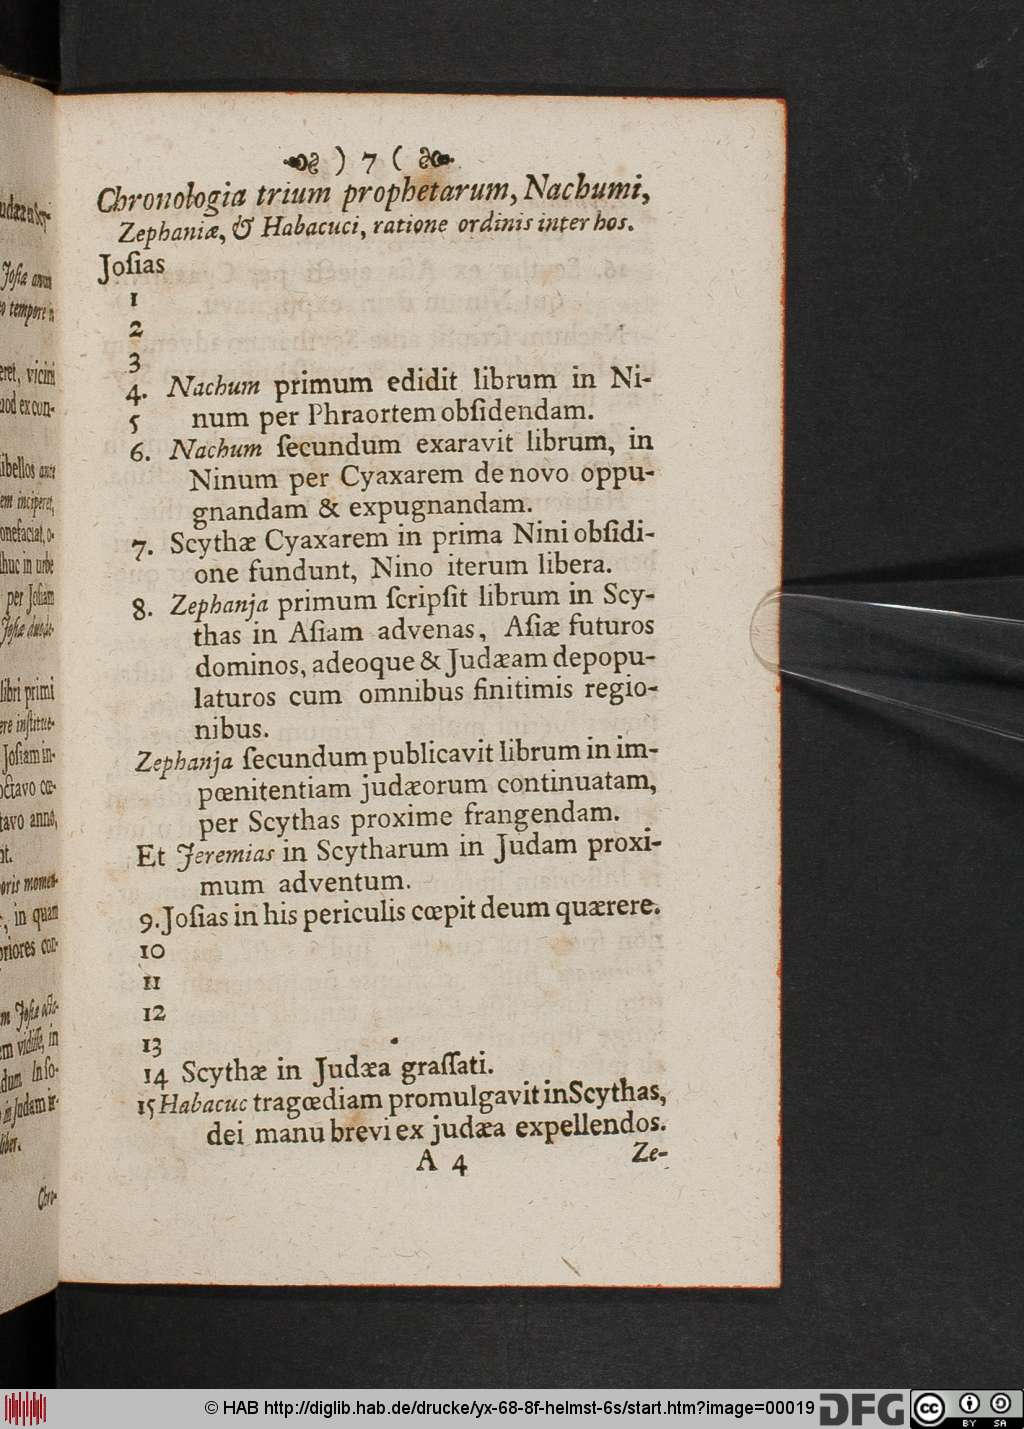 ) 7 (
Chronologia trium prophetarum, Nachumi,
Zephaniæ, & Habacuci, ratione ordinis inter hos.
Joſias
1
2
3
4. Nachum primum edidit librum in Ni-
5 num per Phraortem obſidendam.
6. Nachum ſecundum exaravit librum, in
Ninum per Cyaxarem de novo oppu-
gnandam & expugnandam.
7. Scythæ Cyaxarem in prima Nini obſidi-
one fundunt, Nino iterum libera.
8. Zephanja primum ſcripſit librum in Scy-
thas in Aſiam advenas, Aſiæ futuros
dominos, adeoque & Judæam depopu-
laturos cum omnibus finitimis regio-
nibus.
Zephanja ſecundum publicavit librum in im-
pœnitentiam judæorum continuatam,
per Scythas proxime frangendam.
Et Jeremias in Scytharum in Judam proxi-
mum adventum.
9. Joſias in his periculis cœpit deum quærere.
10
11
12
13
14 Scythæ in Judæa graſſati.
15 Habacuc tragœdiam promulgavit in Scythas,
dei manu brevi ex judæa expellendos.
A 4 Ze-
© HAB http://diglib.hab.de/drucke/yx-68-8f-helmst-6s/start.htm?image=00019
DFG
CC BY SA